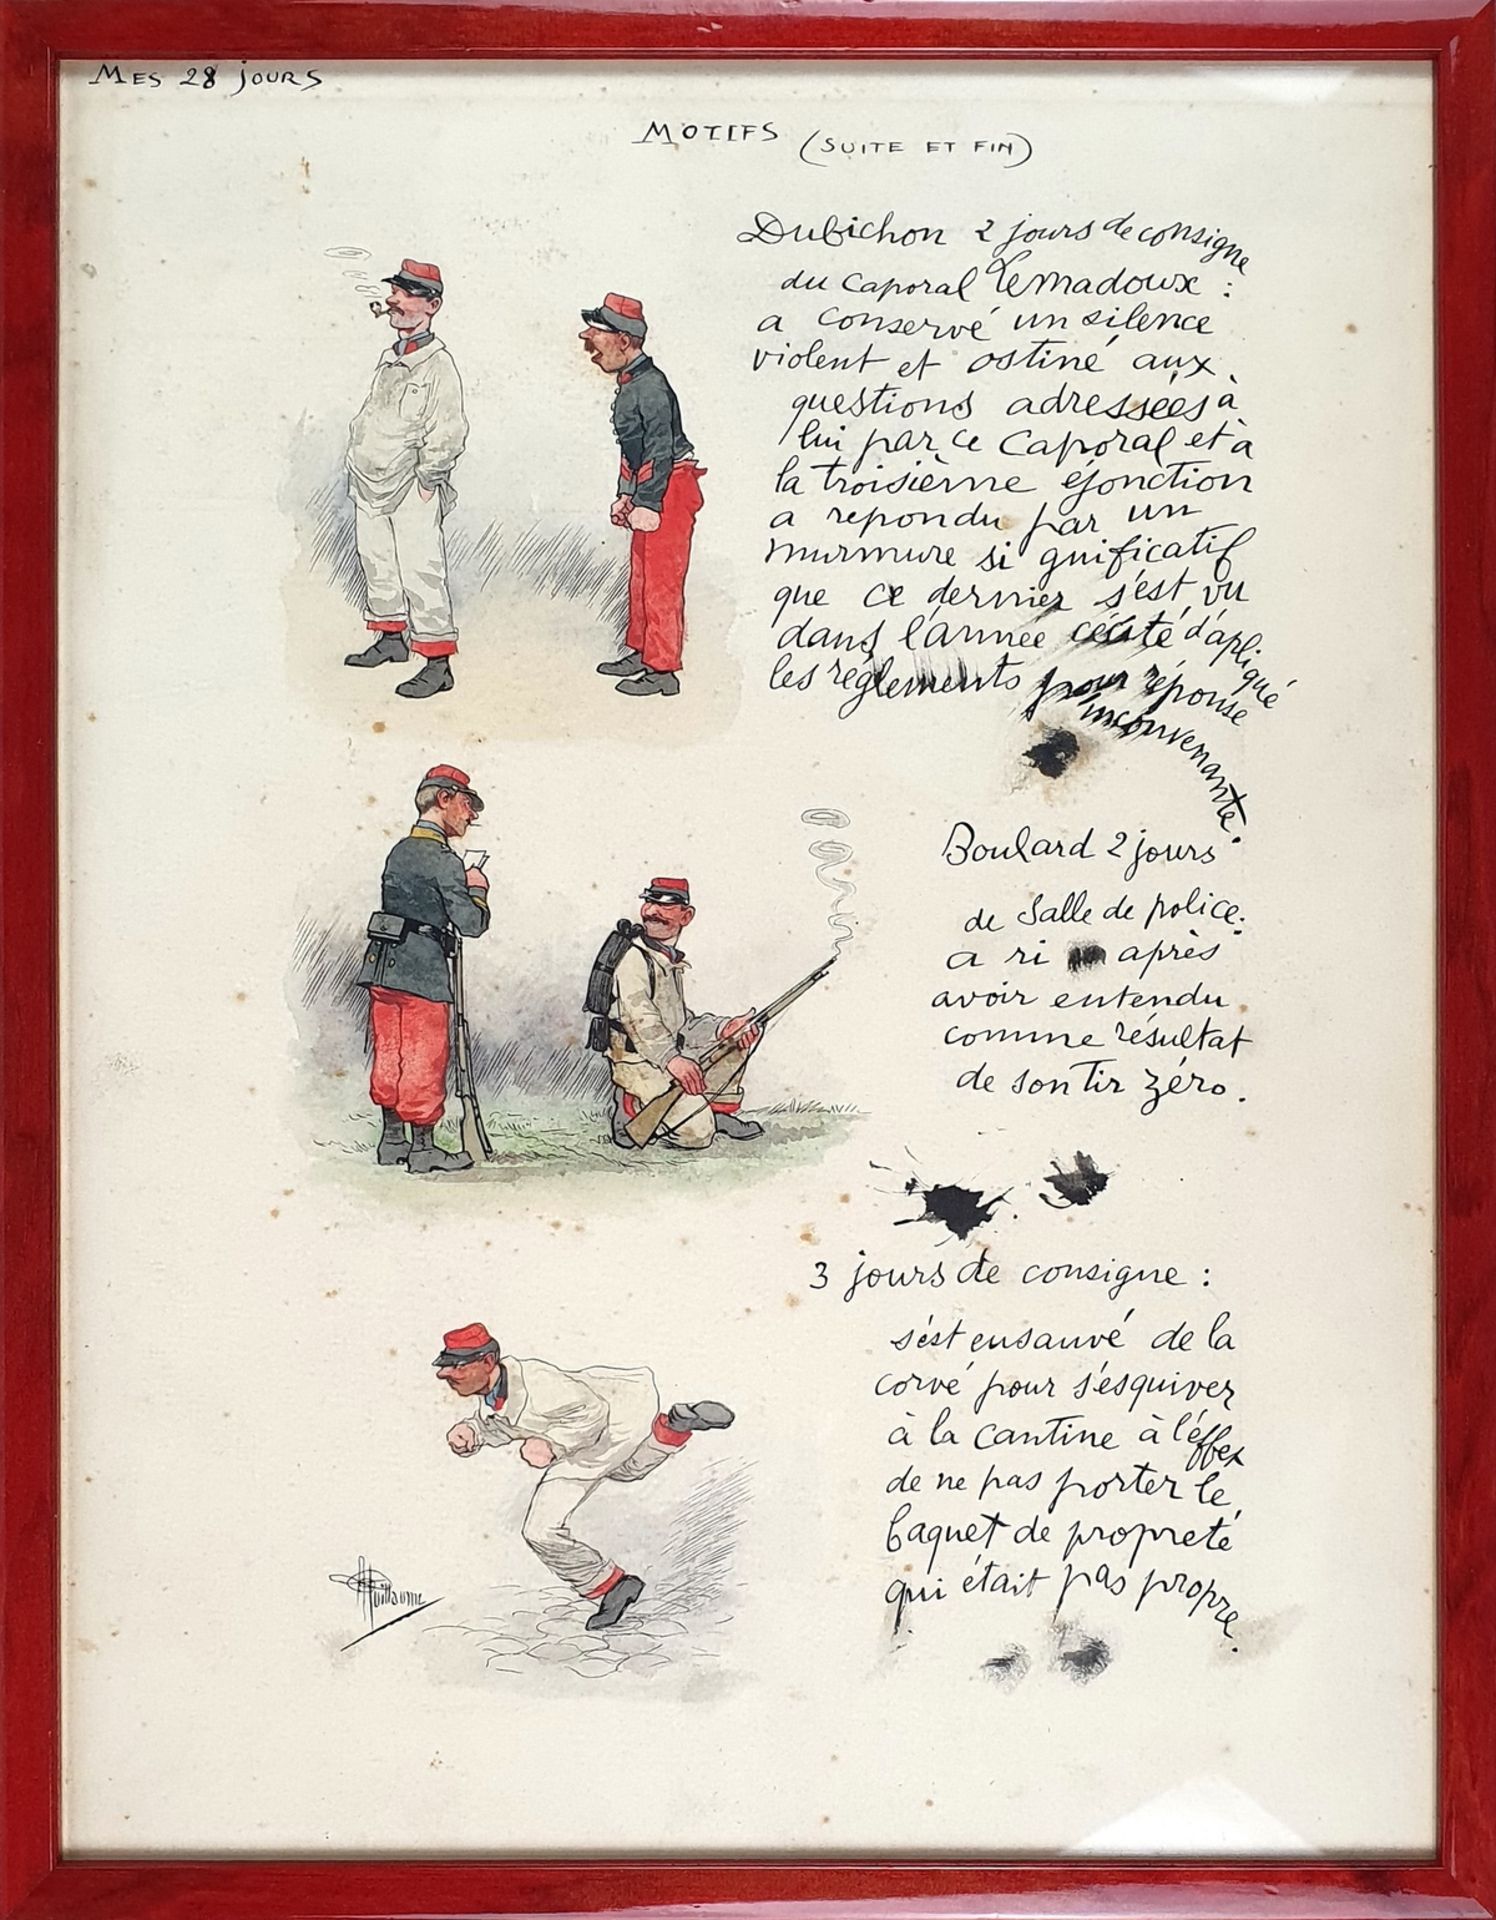 Mes 28 jours
Motifs (suite et fin)
Dubichon 2 jours de consigne
du caporal Lemadoux :
a conservé un silence
violent et ostiné aux
questions adressées à
lui par ce Caporal et à
la troisième éjonction
a repondu par un
murmure si gnificatif
que ce dernier s'est vu
dans l'armée d'apliqué
les réglements pour réponse
inconvenante.
Boulard 2 jours
de salle de police :
a ri après
avoir entendu
comme résultat
de son tir zéro.
3 jours de consigne :
s'est ensauvé de la
corvé pour s'esquiver
à la cantine à l'éffex
de ne pas porter le
baquet de propreté
qui était pas propre.
A Guillaume